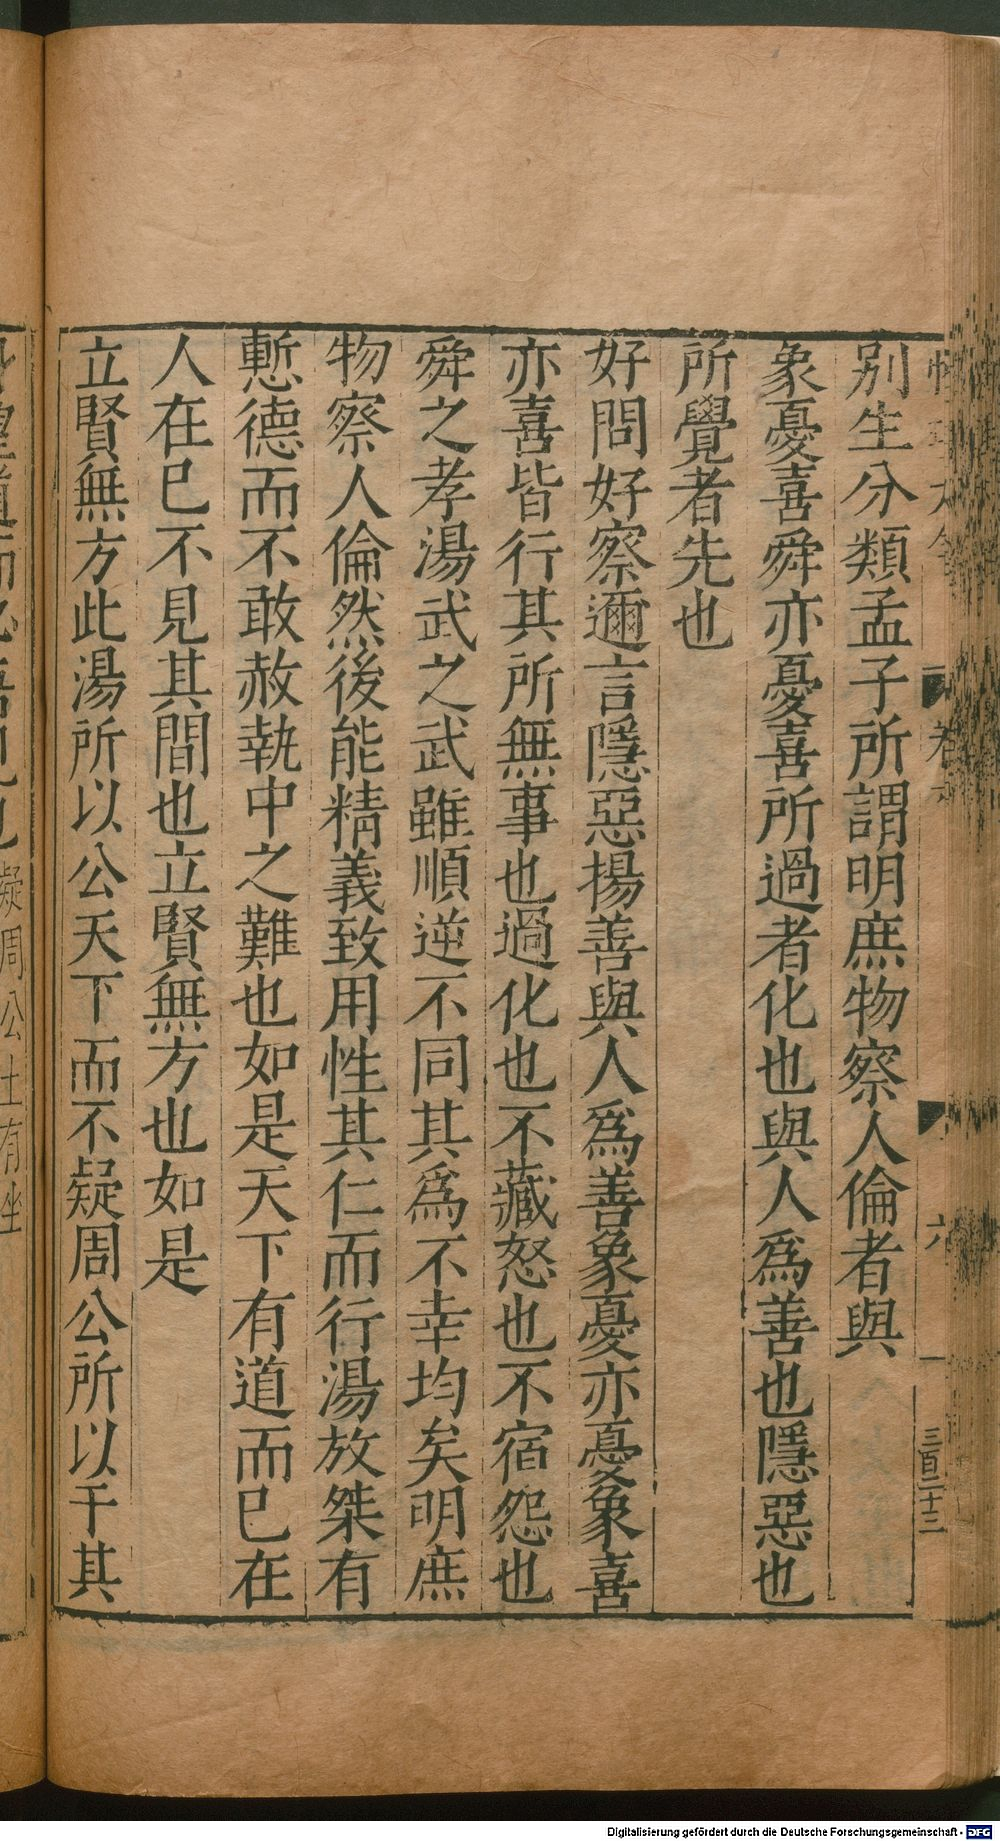 別生分類孟子所謂明庶物察人倫者與
象憂喜舜亦憂喜所過者化也與人爲善也隱惡也
所覺者先也
好問好察邇言隱惡揚善與人爲善象憂亦憂象喜
亦喜皆行其所無事也過化也不藏怒也不宿怨也
舜之孝湯武之武雖順逆不同其爲不幸均矣明庶
物察人倫然後能精義致用性其仁而行湯放桀有
慙德而不敢赦執中之難也如是天下有道而已在
人在已不見其間也立賢無方也如是
立賢無方此湯所以公天下而不疑周公所以于其
疑周公上有坐
三百二十三
Digitalisierung gefördert durch die Deutsche Forschungsgemeinschaft - DFG